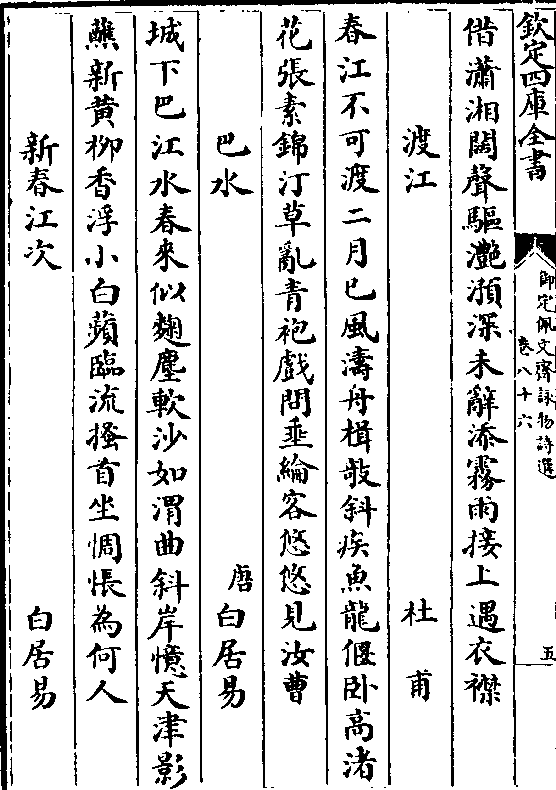 欽定四庫全書
御定佩文齋詠物詩選
卷八十六
五
借瀟湘闊聲驅灔澦深未辭添霧雨接上遇衣襟
渡江
杜甫
春江不可渡二月已風濤舟楫欹斜疾魚龍偃卧高渚
花張素錦汀草亂青袍戲問垂綸客悠悠見汝曹
巴水
唐白居易
城下巴江水春來似麴塵軟沙如渭曲斜岸憶天津影
蘸新黄柳香浮小白蘋臨流搔首坐惆悵為何人
新春江次
白居易